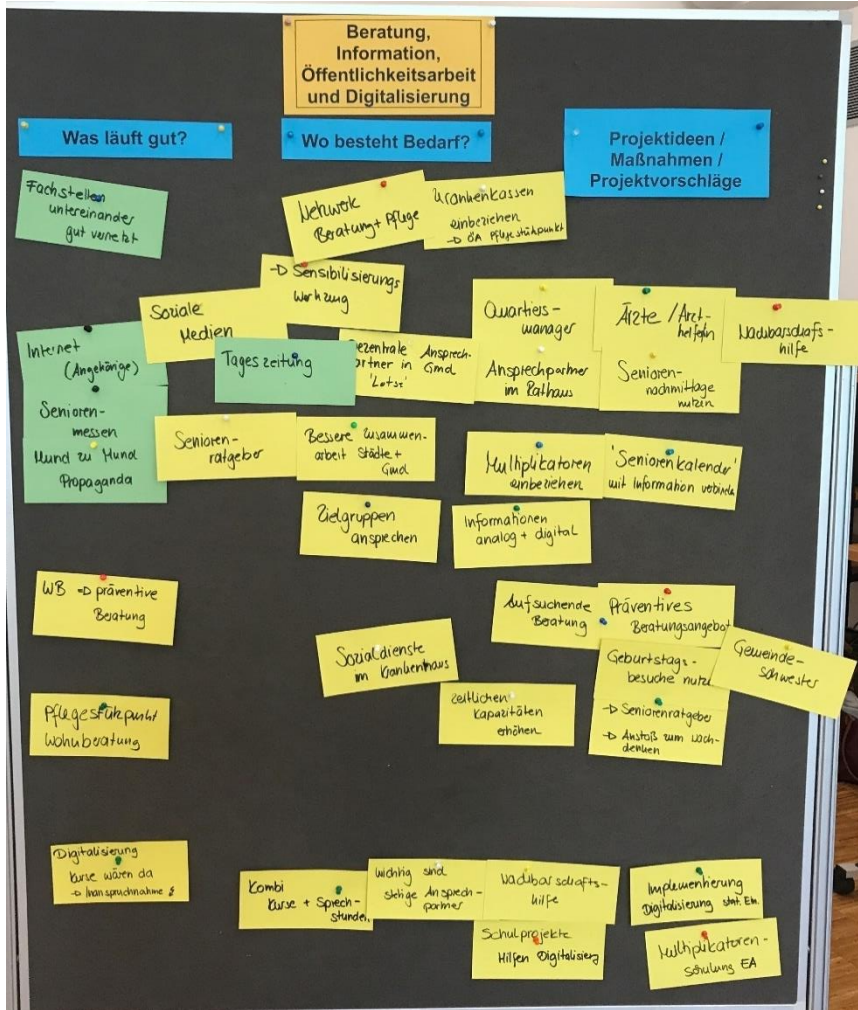 Beratung,
Information,
Öffentlichkeitsarbeit
und Digitalisierung
Was läuft gut?
Wo besteht Bedarf?
Projektideen /
Maßnahmen /
Projektvorschläge
Fachstellen
untereinander
gut vernetzt
Netzwerk
Beratung + Pflege
Krankenkassen
einbeziehen
→ ÖA Pflegestützpunkt
→ Sensibilisierungs
Werkzeug
Soziale
Medien
Internet
(Angehörige)
Tageszeitung
Dezentrale Ansprech-
partner in Gmd
'Lotse'
Quartiers-
manager
Ansprechpartner
im Rathaus
Ärzte / Arzt-
helferin
Senioren-
nachmittage
nutzen
Nachbarschafts-
hilfe
Senioren-
messen
Mund zu Mund
Propaganda
Senioren-
ratgeber
Bessere Zusammen-
arbeit Städte +
Gmd
Multiplikatoren
einbeziehen
'Seniorenkalender'
mit Information verbinden
Zielgruppen
ansprechen
Informationen
analog + digital
WB => präventive
Beratung
Aufsuchende
Beratung
Präventives
Beratungsangebot
Sozialdienste
im Krankenhaus
Geburtstags-
besuche nutzen
Gemeinde-
schwester
zeitlichen
Kapazitäten
erhöhen
→ Seniorenratgeber
→ Anstoß zum Nach-
denken
Pflegestützpunkt
Wohnberatung
Digitalisierung
Kurse wären da
→ Inanspruchnahme
Kombi
Kurse + Sprech-
stunden
Wichtig sind
stetige Ansprech-
partner
Nachbarschafts-
hilfe
Schulprojekte
Hilfen Digitalisierg
Implementierung
Digitalisierung stat. Ein.
Multiplikatoren-
schulung EA